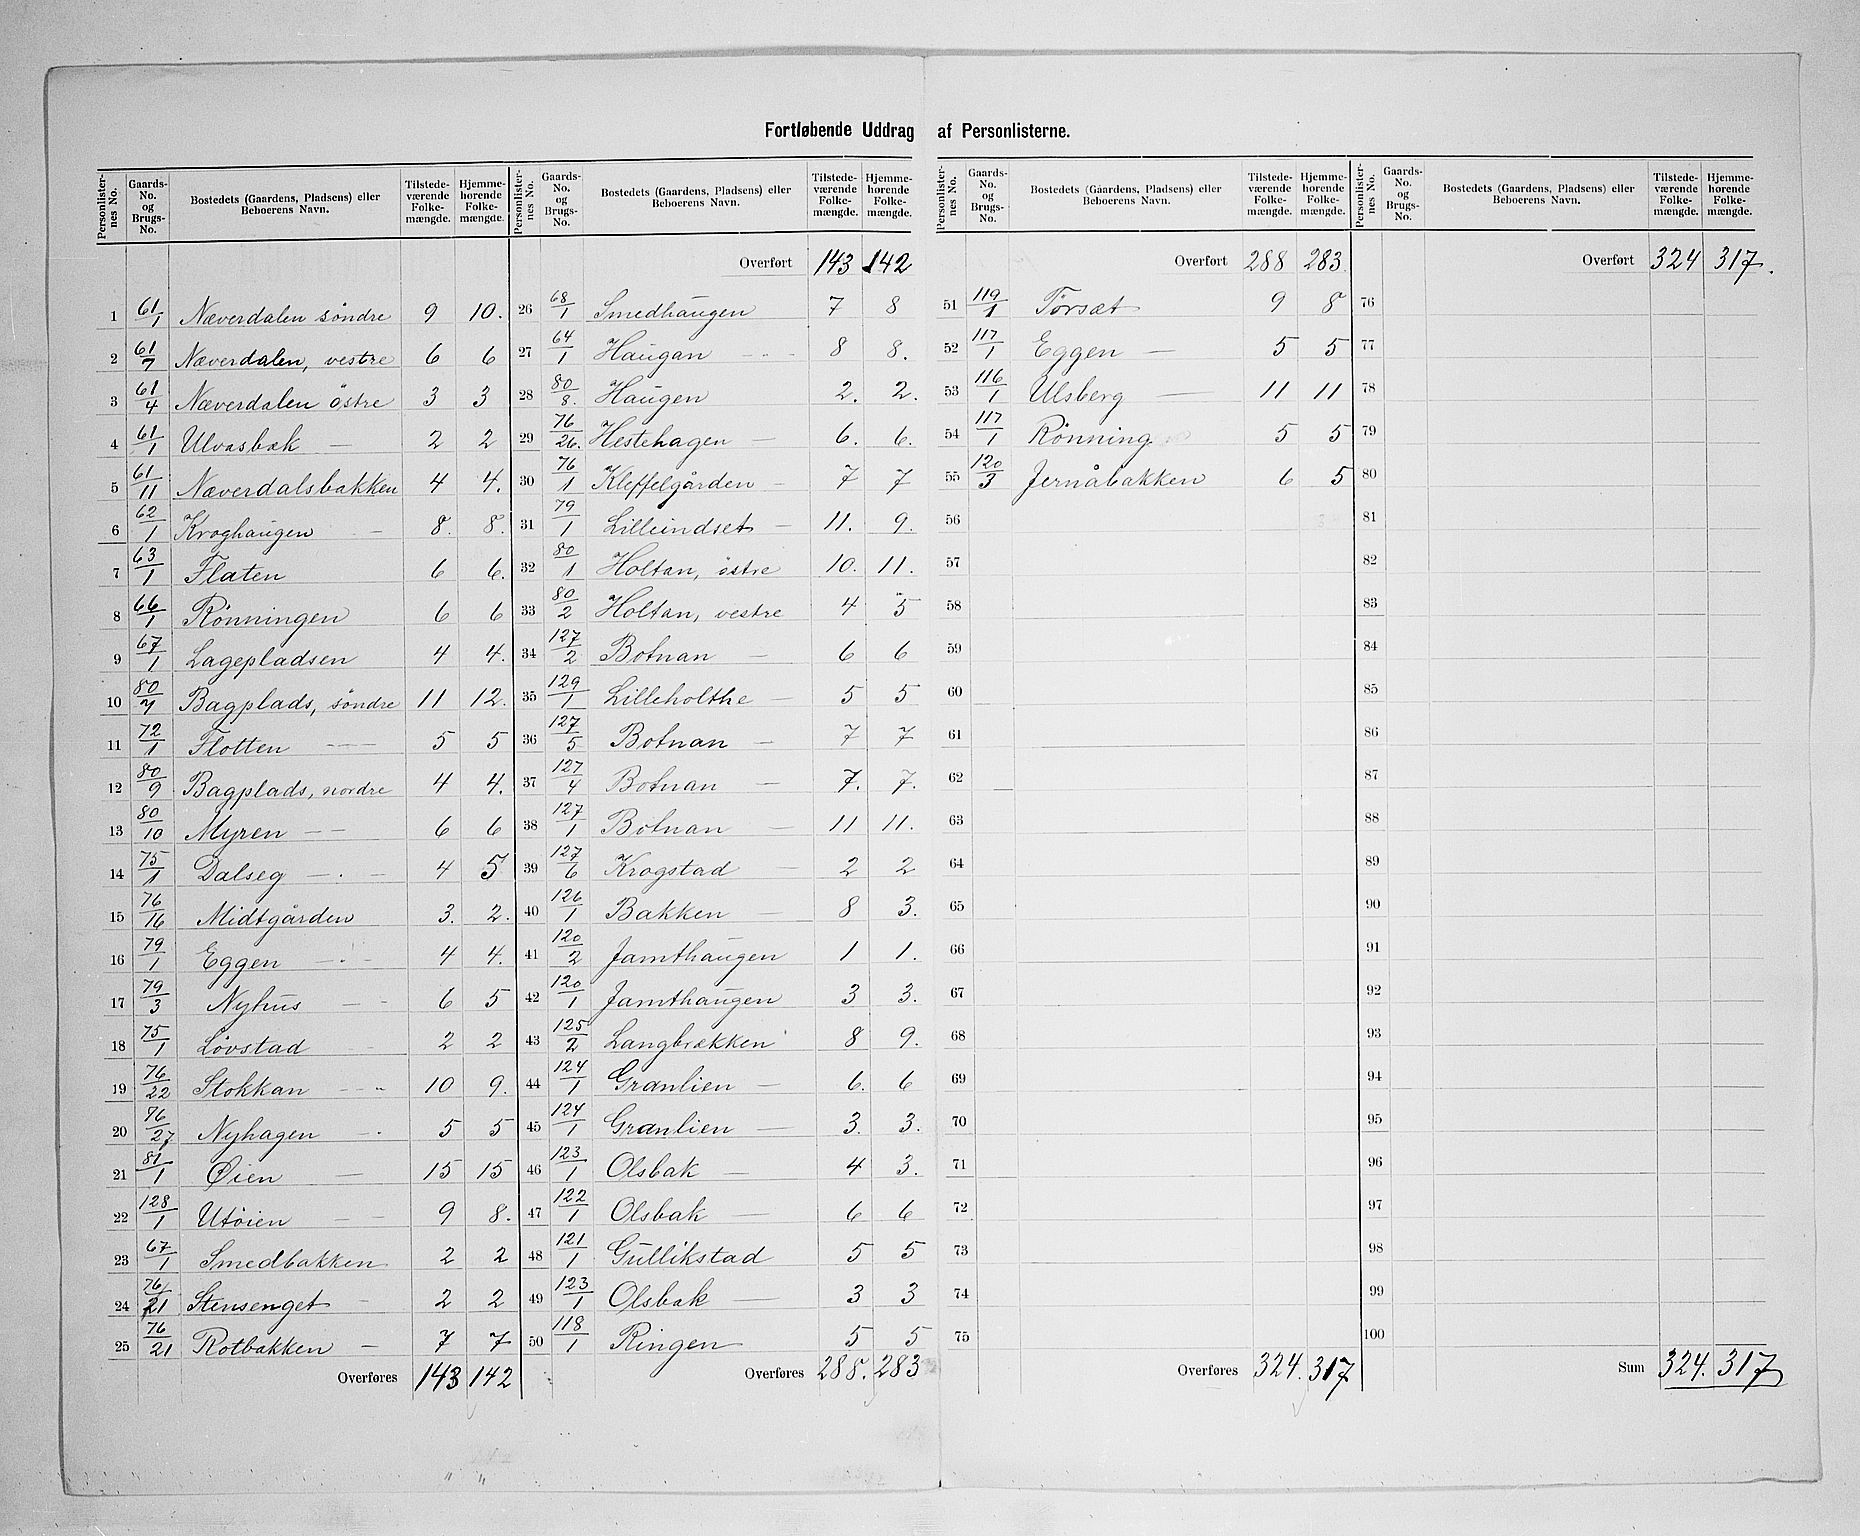 Fortløbende Uddrag af Personlisterne.
Personlisternes No. Gaards-No. og Brugs-No. Bostedets (Gaardens, Pladsens) eller Beboerens Navn. Tilstedeværende Folkemængde. Hjemmehørende Folkemængde.
1 61/1 Næverdalen søndre 9 10.
2 61/7 Næverdalen, vestre 6 6
3 61/4 Næverdalen østre 3 3
4 61/1 Ulvasbæk — 2 2
5 61/11 Næverdalsbakken 4 4.
6 62/1 Kroghaugen — 8. 8.
7 63/1 Flaten 6 6.
8 66/1 Rønningen 6 6
9 67/1 Lagepladsen 4 4.
10 80/7 Bagplads, søndre 11 12.
11 72/1 Flotten — 5 5
12 80/9 Bagplads, nordre 4 4.
13 80/10 Myren — 6 6
14 75/1 Dalseg — 4 5
15 76/16 Midtgården 3. 2.
16 79/1 Eggen — 4 4.
17 79/3 Nyhus — 6 5
18 75/1 Løvstad 2 2
19 76/22 Stokkan — 10 9.
20 76/27 Nyhagen — 5 5
21 81/1 Øien — 15 15
22 128/1 Utøien — 9 8.
23 67/1 Smedbakken 2 2
24 76/21 Stensenget — 2 2
25 76/21 Rotbakken — 7 7
Overføres 143 142
Personlisternes No. Gaards-No. og Brugs-No. Bostedets (Gaardens, Pladsens) eller Beboerens Navn. Tilstedeværende Folkemængde. Hjemmehørende Folkemængde.
Overført 143 142
26 68/1 Smedhaugen 7 8
27 64/1 Haugan — 8 8.
28 80/8. Haugen 2. 2.
29 76/26. Hestehagen — 6. 6.
30 76/1 Kleffelgården — 7 7
31 79/1 Lilleindset — 11. 9.
32 80/1 Holtan, østre 10. 11.
33 80/2 Holtan, vestre 4 5
34 127/2 Botnan — 6 6
35 129/1 Lilleholthe — 5 5
36 127/5 Botnan — 7 7
37 127/4 Botnan — 7. 7.
38 127/1 Botnan — 11 11.
39 127/6 Krogstad — 2 2
40 126/1 Bakken — 8 3.
41 120/2 Jamthaugen 1 1.
42 120/1 Jamthaugen 3 3.
43 125/2 Langbrækken 8 9.
44 124/1 Granlien — 6. 6
45 124/1 Granlien — 3. 3.
46 123/1 Olsbak — 4 3.
47 122/1 Olsbak — 6 6
48 121/1 Gullikstad 5 5
49 123/1 Olsbak — 3 3
50 118/1 Ringen 5 5
Overføres 288. 283
Personlisternes No. Gaards-No. og Brugs-No. Bostedets (Gaardens, Pladsens) eller Beboerens Navn. Tilstedeværende Folkemængde. Hjemmehørende Folkemængde.
Overført 288 283.
51 119/1 Tørsæt 9 8
52 117/1 Eggen — 5 5
53 116/1 Ulsberg — 11 11
54 117/1 Rønning 5 5
55 120/3 Jernåbakken 6 5
56
57
58
59
60
61
62
63
64
65
66
67
68
69
70
71
72
73
74
75
Overføres 324. 317
Personlisternes No. Gaards-No. og Brugs-No. Bostedets (Gaardens, Pladsens) eller Beboerens Navn. Tilstedeværende Folkemængde. Hjemmehørende Folkemængde.
Overført 324 317.
76
77
78
79
80
81
82
83
84
85
86
87
88
89
90
91
92
93
94
95
96
97
98
99
100
Sum 324. 317